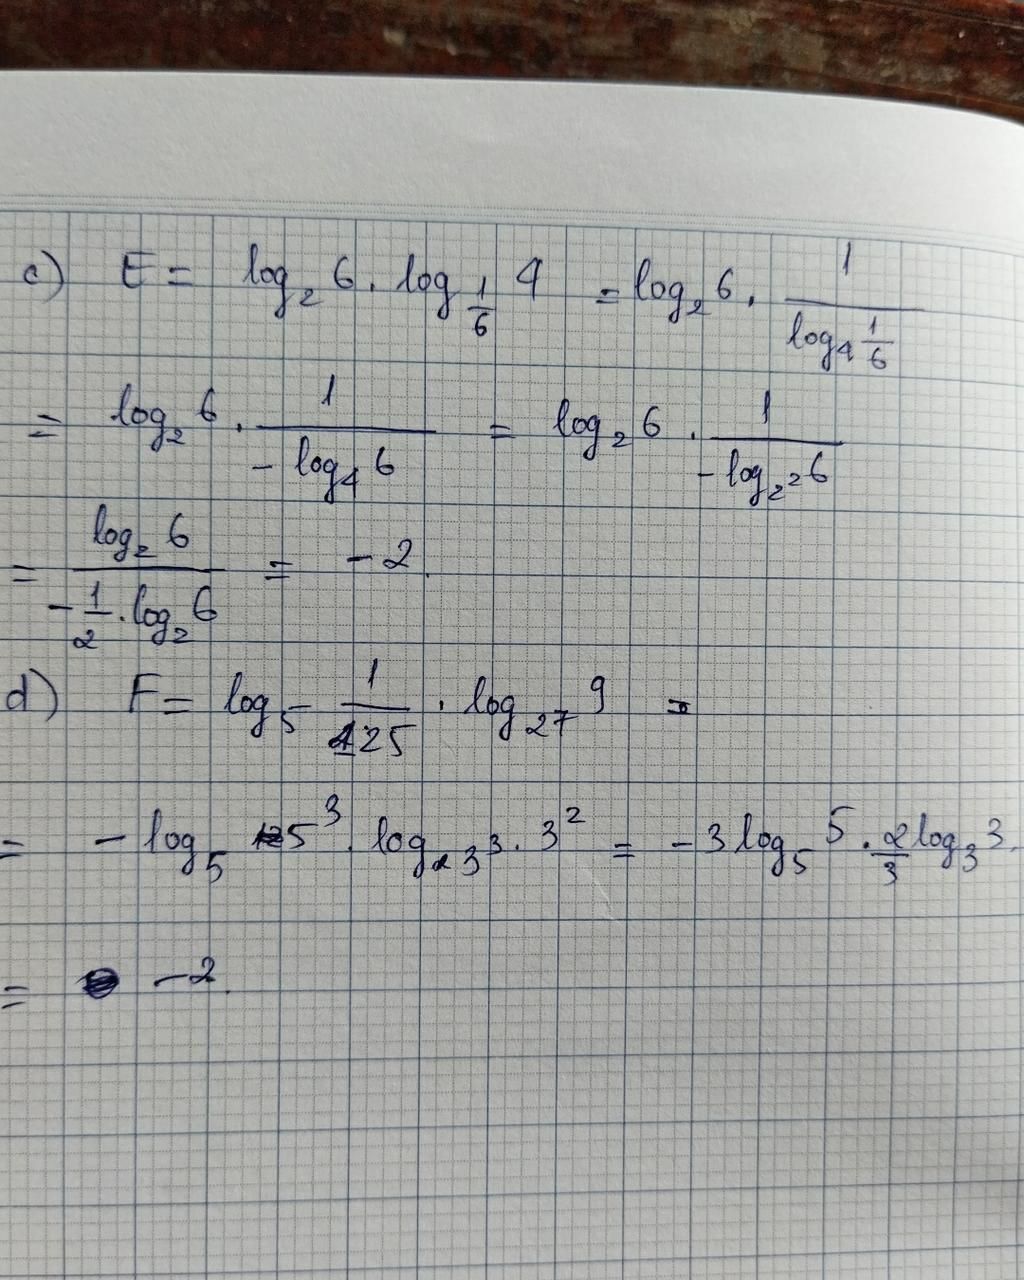 c) E = log₂ 6 . log_{1/6} 4 = log₂ 6 . 1/(log₄ 1/6)
= log₂ 6 . 1/(- log₄ 6) = log₂ 6 . 1/(- log_{2²} 6)
= (log₂ 6)/(- 1/2 . log₂ 6) = - 2.
d) F = log₅ 1/125 . log₂₇ 9 =
= - log₅ 5³ . log_{3³} . 3² = - 3 log₅ 5 . 2/3 log₃ 3.
= - 2.